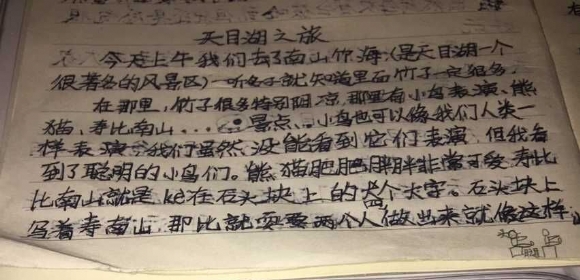 天目湖之旅
今天上午我们去了南山竹海(是天目湖一个
很著名的风景区)一听名子就知道里面竹子一定很多。
在那里,竹子很多特别阴凉,那里有小鸟表演、熊
猫、寿比南山......景点、小鸟也可以像我们人类一
样表演,我们虽然没能看到它们表演,但我看
到了聪明的小鸟们。熊猫肥肥胖胖非常可爱,寿比
比南山就是ke在石头块上的四个大字。石头块上
写着寿南山,那比就要要两个人做出来就像这样